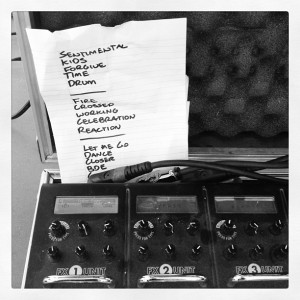 SENTIMENTAL
KIDS
FORGIVE
TIME
DRUM
FIRE
CROSSED
WORKING
CELEBRATION
REACTION
LET ME GO
DANCE
CLOSER
BDE
FX 1 UNIT
FX 2 UNIT
FX 3 UNIT